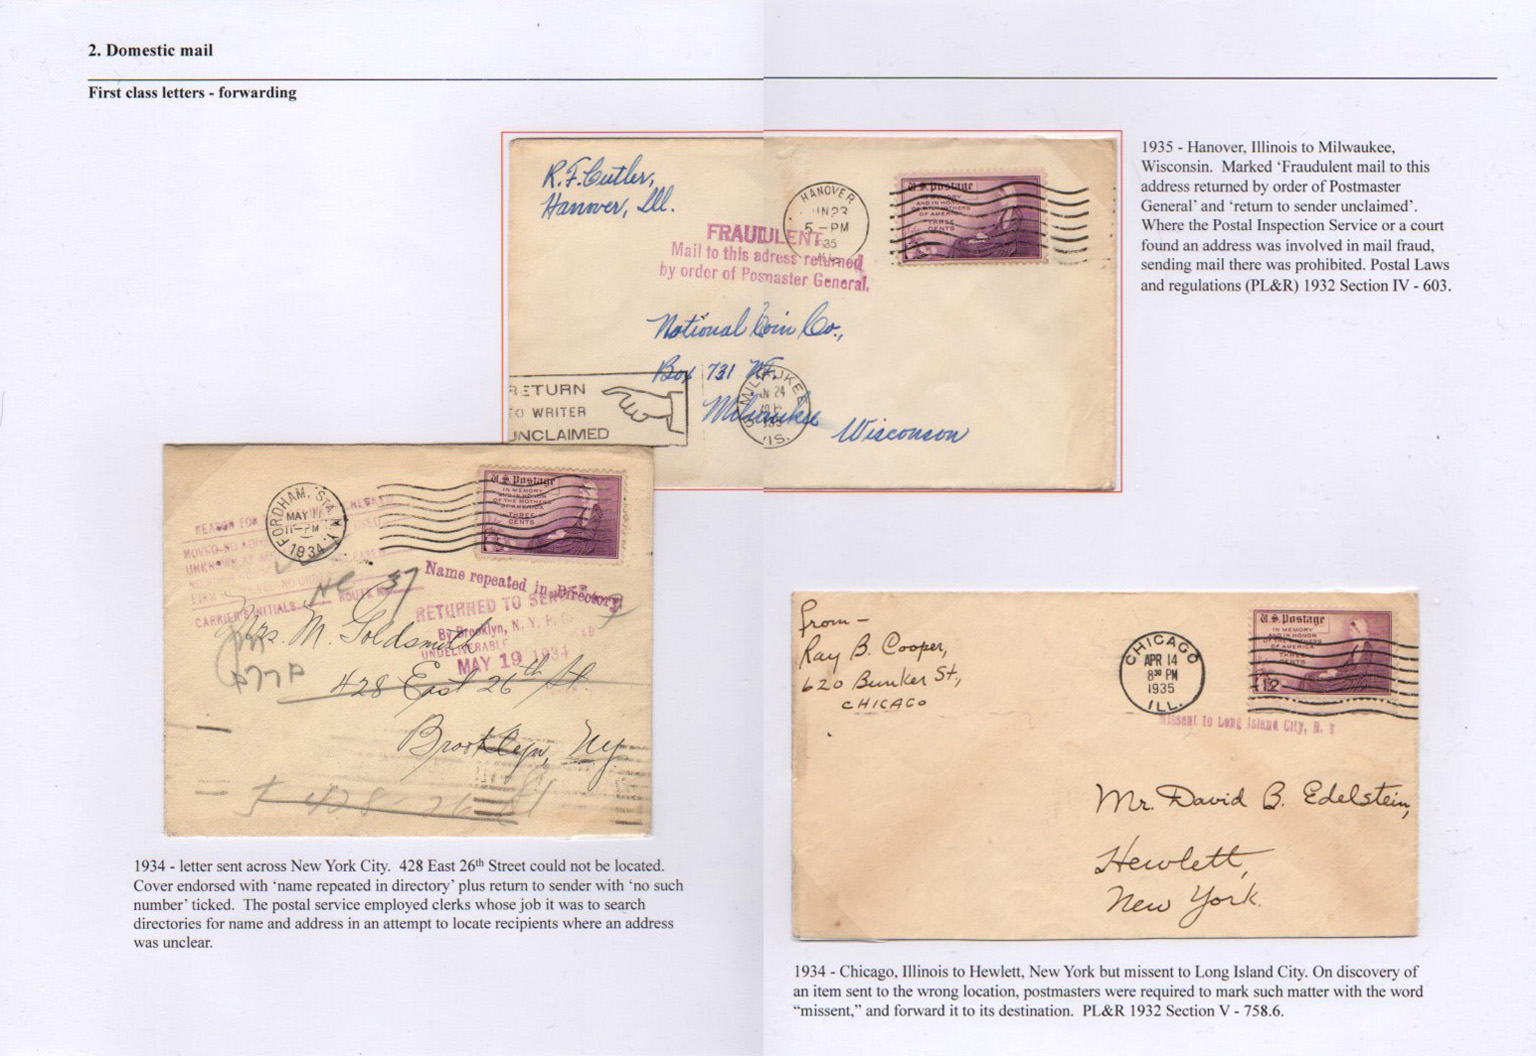 2. Domestic mail
First class letters - forwarding
R.F. Cutler,
Hanover, Ill.
HANOVER
5 - PM
FRAUDULENT
Mail to this adress returned
by order of Posmaster General.
U.S. Postage
IN MEMORY
AND IN HONOR
OF THE MOTHERS
OF AMERICA
THREE
CENTS
National Coin Co.,
Box 731
Milwaukee
Wisconsin
MILWAUKEE
WIS.
RETURN
TO WRITER
UNCLAIMED
1935 - Hanover, Illinois to Milwaukee,
Wisconsin. Marked ‘Fraudulent mail to this
address returned by order of Postmaster
General’ and ‘return to sender unclaimed’.
Where the Postal Inspection Service or a court
found an address was involved in mail fraud,
sending mail there was prohibited. Postal Laws
and regulations (PL&R) 1932 Section IV - 603.
FORDHAM, STA. N.Y.
MAY
11-PM
1934
U.S. Postage
IN MEMORY
AND IN HONOR
OF THE MOTHERS
OF AMERICA
THREE
CENTS
REASON FOR
CARRIER'S INITIALS
ROUTE
37
Name repeated in Directory
RETURNED TO SENDER
By Brooklyn, N. Y. P.
UNDELIVERABLE
MAY 19 1934
Mrs. M. Goldsmith
428 East 26th St.
Brooklyn, NY
428 - 26
1934 - letter sent across New York City. 428 East 26th Street could not be located.
Cover endorsed with ‘name repeated in directory’ plus return to sender with ‘no such
number’ ticked. The postal service employed clerks whose job it was to search
directories for name and address in an attempt to locate recipients where an address
was unclear.
From -
Ray B. Cooper,
620 Bunker St,
CHICAGO
CHICAGO
APR 14
8 30 PM
1935
ILL.
U.S. Postage
IN MEMORY
AND IN HONOR
OF THE MOTHERS
OF AMERICA
THREE
CENTS
12
Missent to Long Island City, N. Y
Mr. David B. Edelstein,
Hewlett,
New York.
1934 - Chicago, Illinois to Hewlett, New York but missent to Long Island City. On discovery of
an item sent to the wrong location, postmasters were required to mark such matter with the word
“missent,” and forward it to its destination. PL&R 1932 Section V - 758.6.